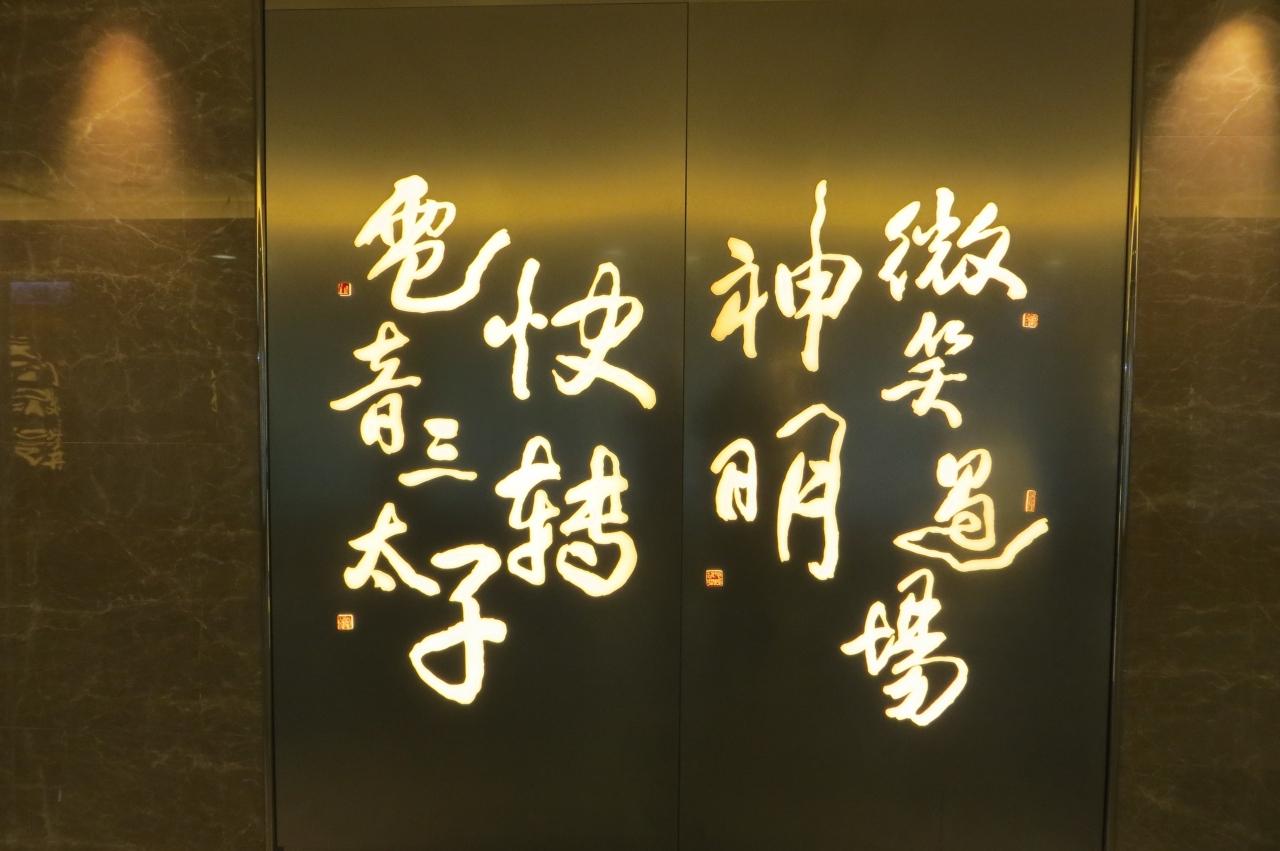 微笑過場
神明
快轉
電音三太子